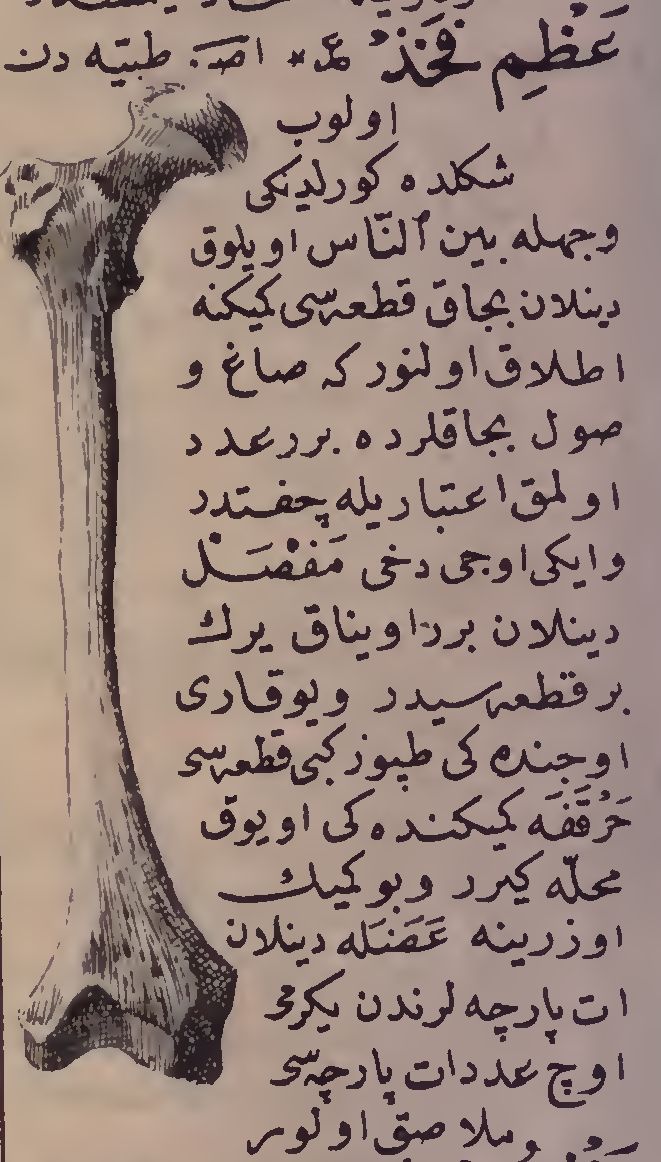 عَظْمِ فَخَذْ عر * اصـ. طبيه دن
اولوب
شكلده كورلديكى
وجهله بين ٱلنّاس اويلوق
دينلان بجاق قطعه‌سى كميكنه
اطلاق اولنور كه صاغ و
صول بجاقلرده بررعدد
اولمق اعتباريله چفتدر
وايكى اوجى دخى مَفْصَلْ
دينلان برر اويناق يرك
بر قطعه‌سيدر ويوقارى
اوجنده كى طپوز كبى قطعه‌سى
حَرْقَفَه كميكنده كى اويوق
محلّه كيرر وبو كميك
اوزرينه عَضَلَه دينلان
ات پارچه لرندن يكرمى
اوچ عدد ات پارچه‌سى
ملاصق اولور